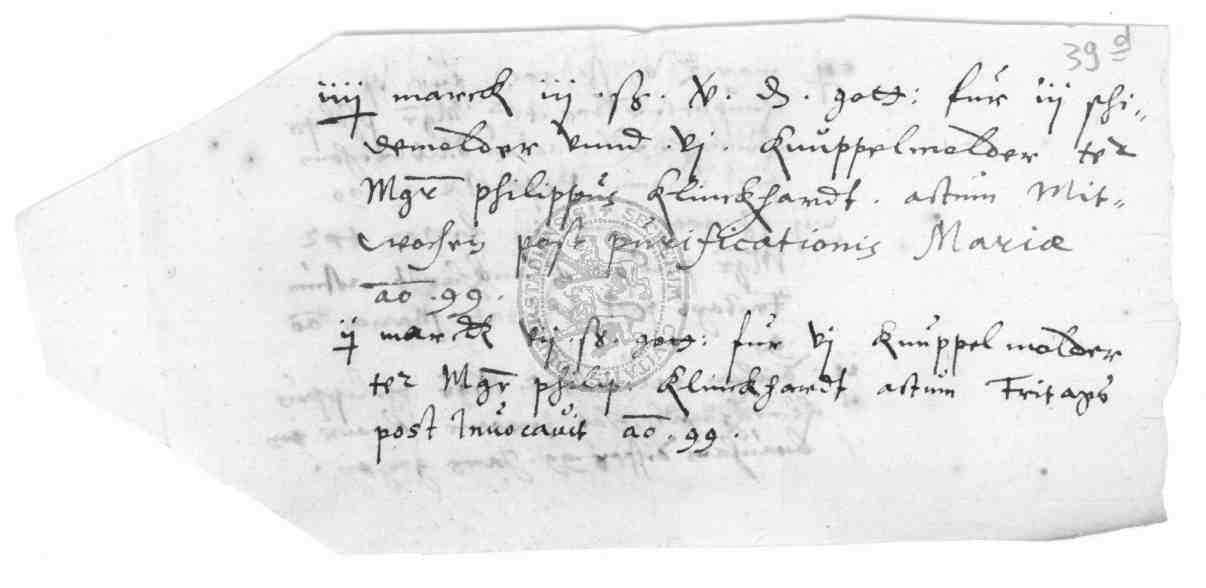 39 d
iiij marck iij . ß . v . d . gott: fur iij schi-
demolder vnnd . vj . knuppelmolder ter
Mgr philippus Klinckhardt . actum Mit-
wochen post purificationis Mariæ
ao . 99 .
ij marck vij . ß . gott: fur vj knuppelmolder
ter Mgr philip Klinckhardt actum Fritags
post Invocavit ao . 99 .